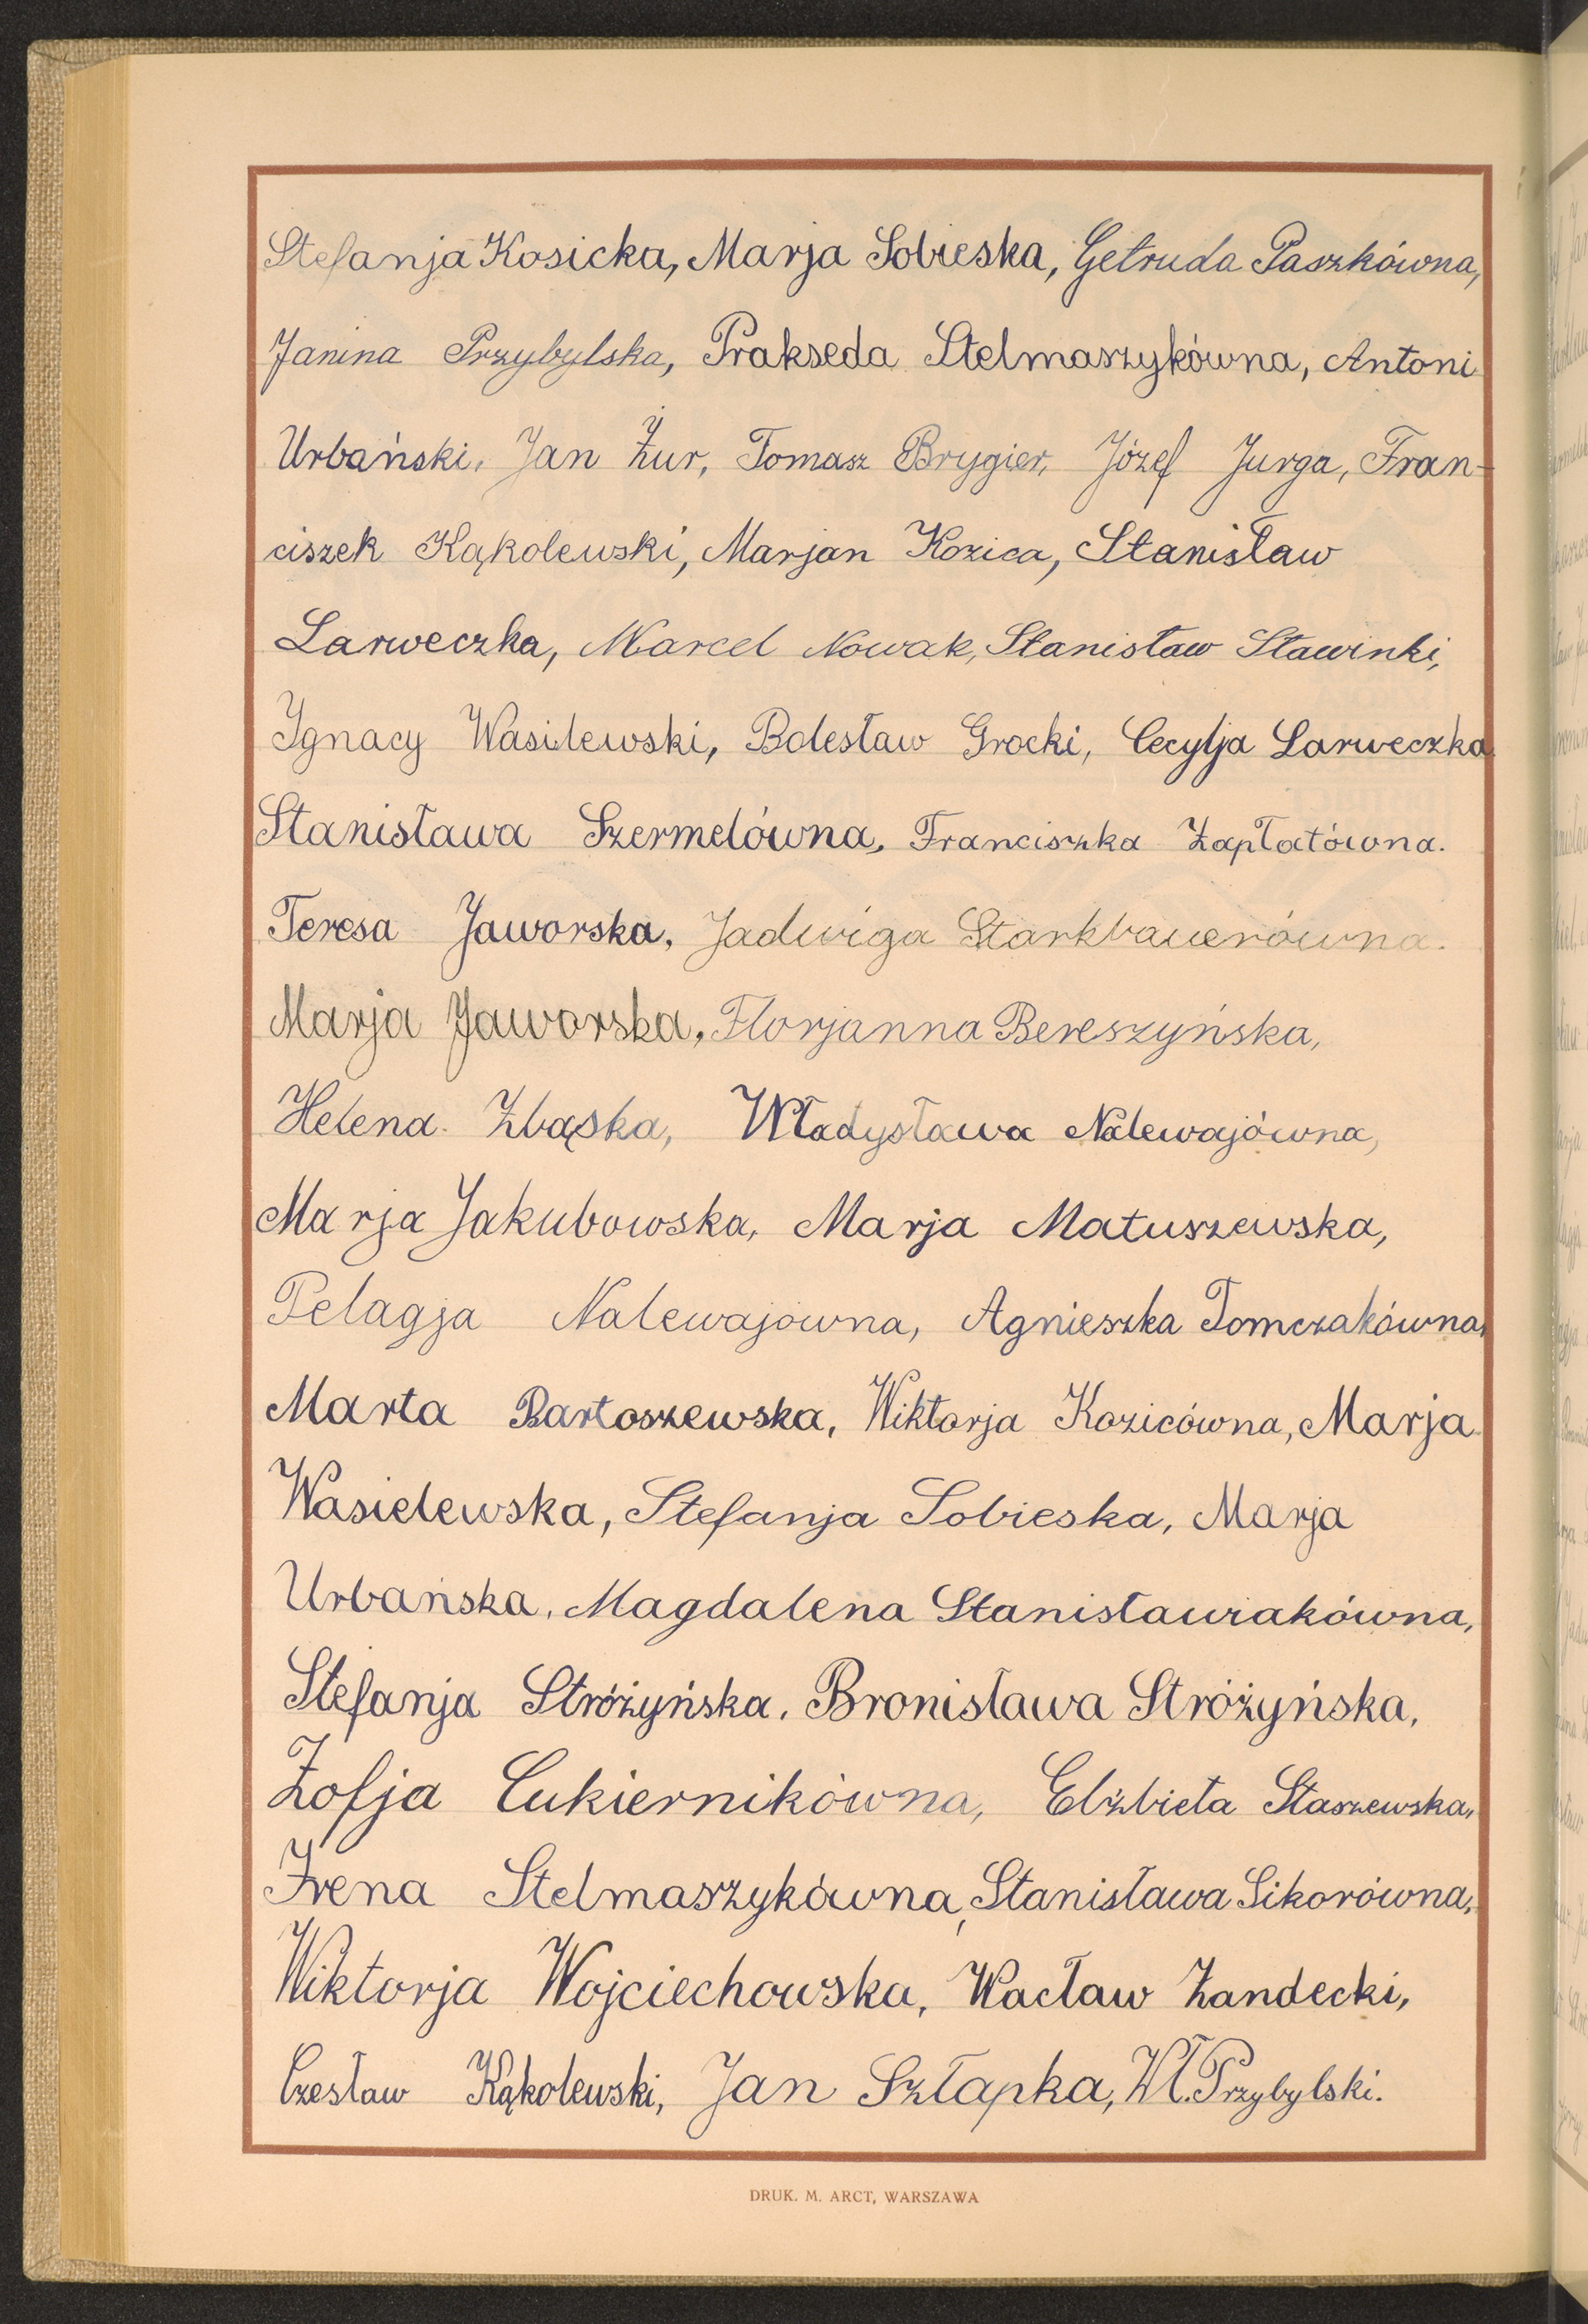 Stefanja Kosicka, Marja Sobieska, Getruda Paszkówna,
Janina Przybylska, Prakseda Stelmaszykówna, Antoni
Urbański, Jan Żur, Tomasz Brygier, Józef Jurga, Fran-
ciszek Kąkolewski, Marjan Kozica, Stanisław
Larweczka, Marcel Nowak, Stanisław Sławinki,
Ignacy Wasilewski, Bolesław Grocki, Cecylja Larweczka
Stanisława Szermelówna, Franciszka Zapłatówna.
Teresa Jaworska, Jadwiga Starkbauerówna.
Marja Jaworska, Florjanna Bereszyńska,
Helena Zbąska, Władysława Nalewajówna,
Marja Jakubowska, Marja Matuszewska,
Pelagja Nalewajówna, Agnieszka Tomczakówna,
Marta Bartoszewska, Wiktorja Kozicówna, Marja
Wasielewska, Stefanja Sobieska, Marja
Urbańska, Magdalena Stanisławiakówna,
Stefanja Stróżyńska, Bronisława Stróżyńska,
Zofja Cukiernikówna, Elżbieta Staszewska,
Irena Stelmaszykówna, Stanisława Sikorówna,
Wiktorja Wojciechowska, Wacław Żandecki,
Czesław Kąkolewski, Jan Szłapka, Wł. Przybylski.
DRUK. M. ARCT, WARSZAWA